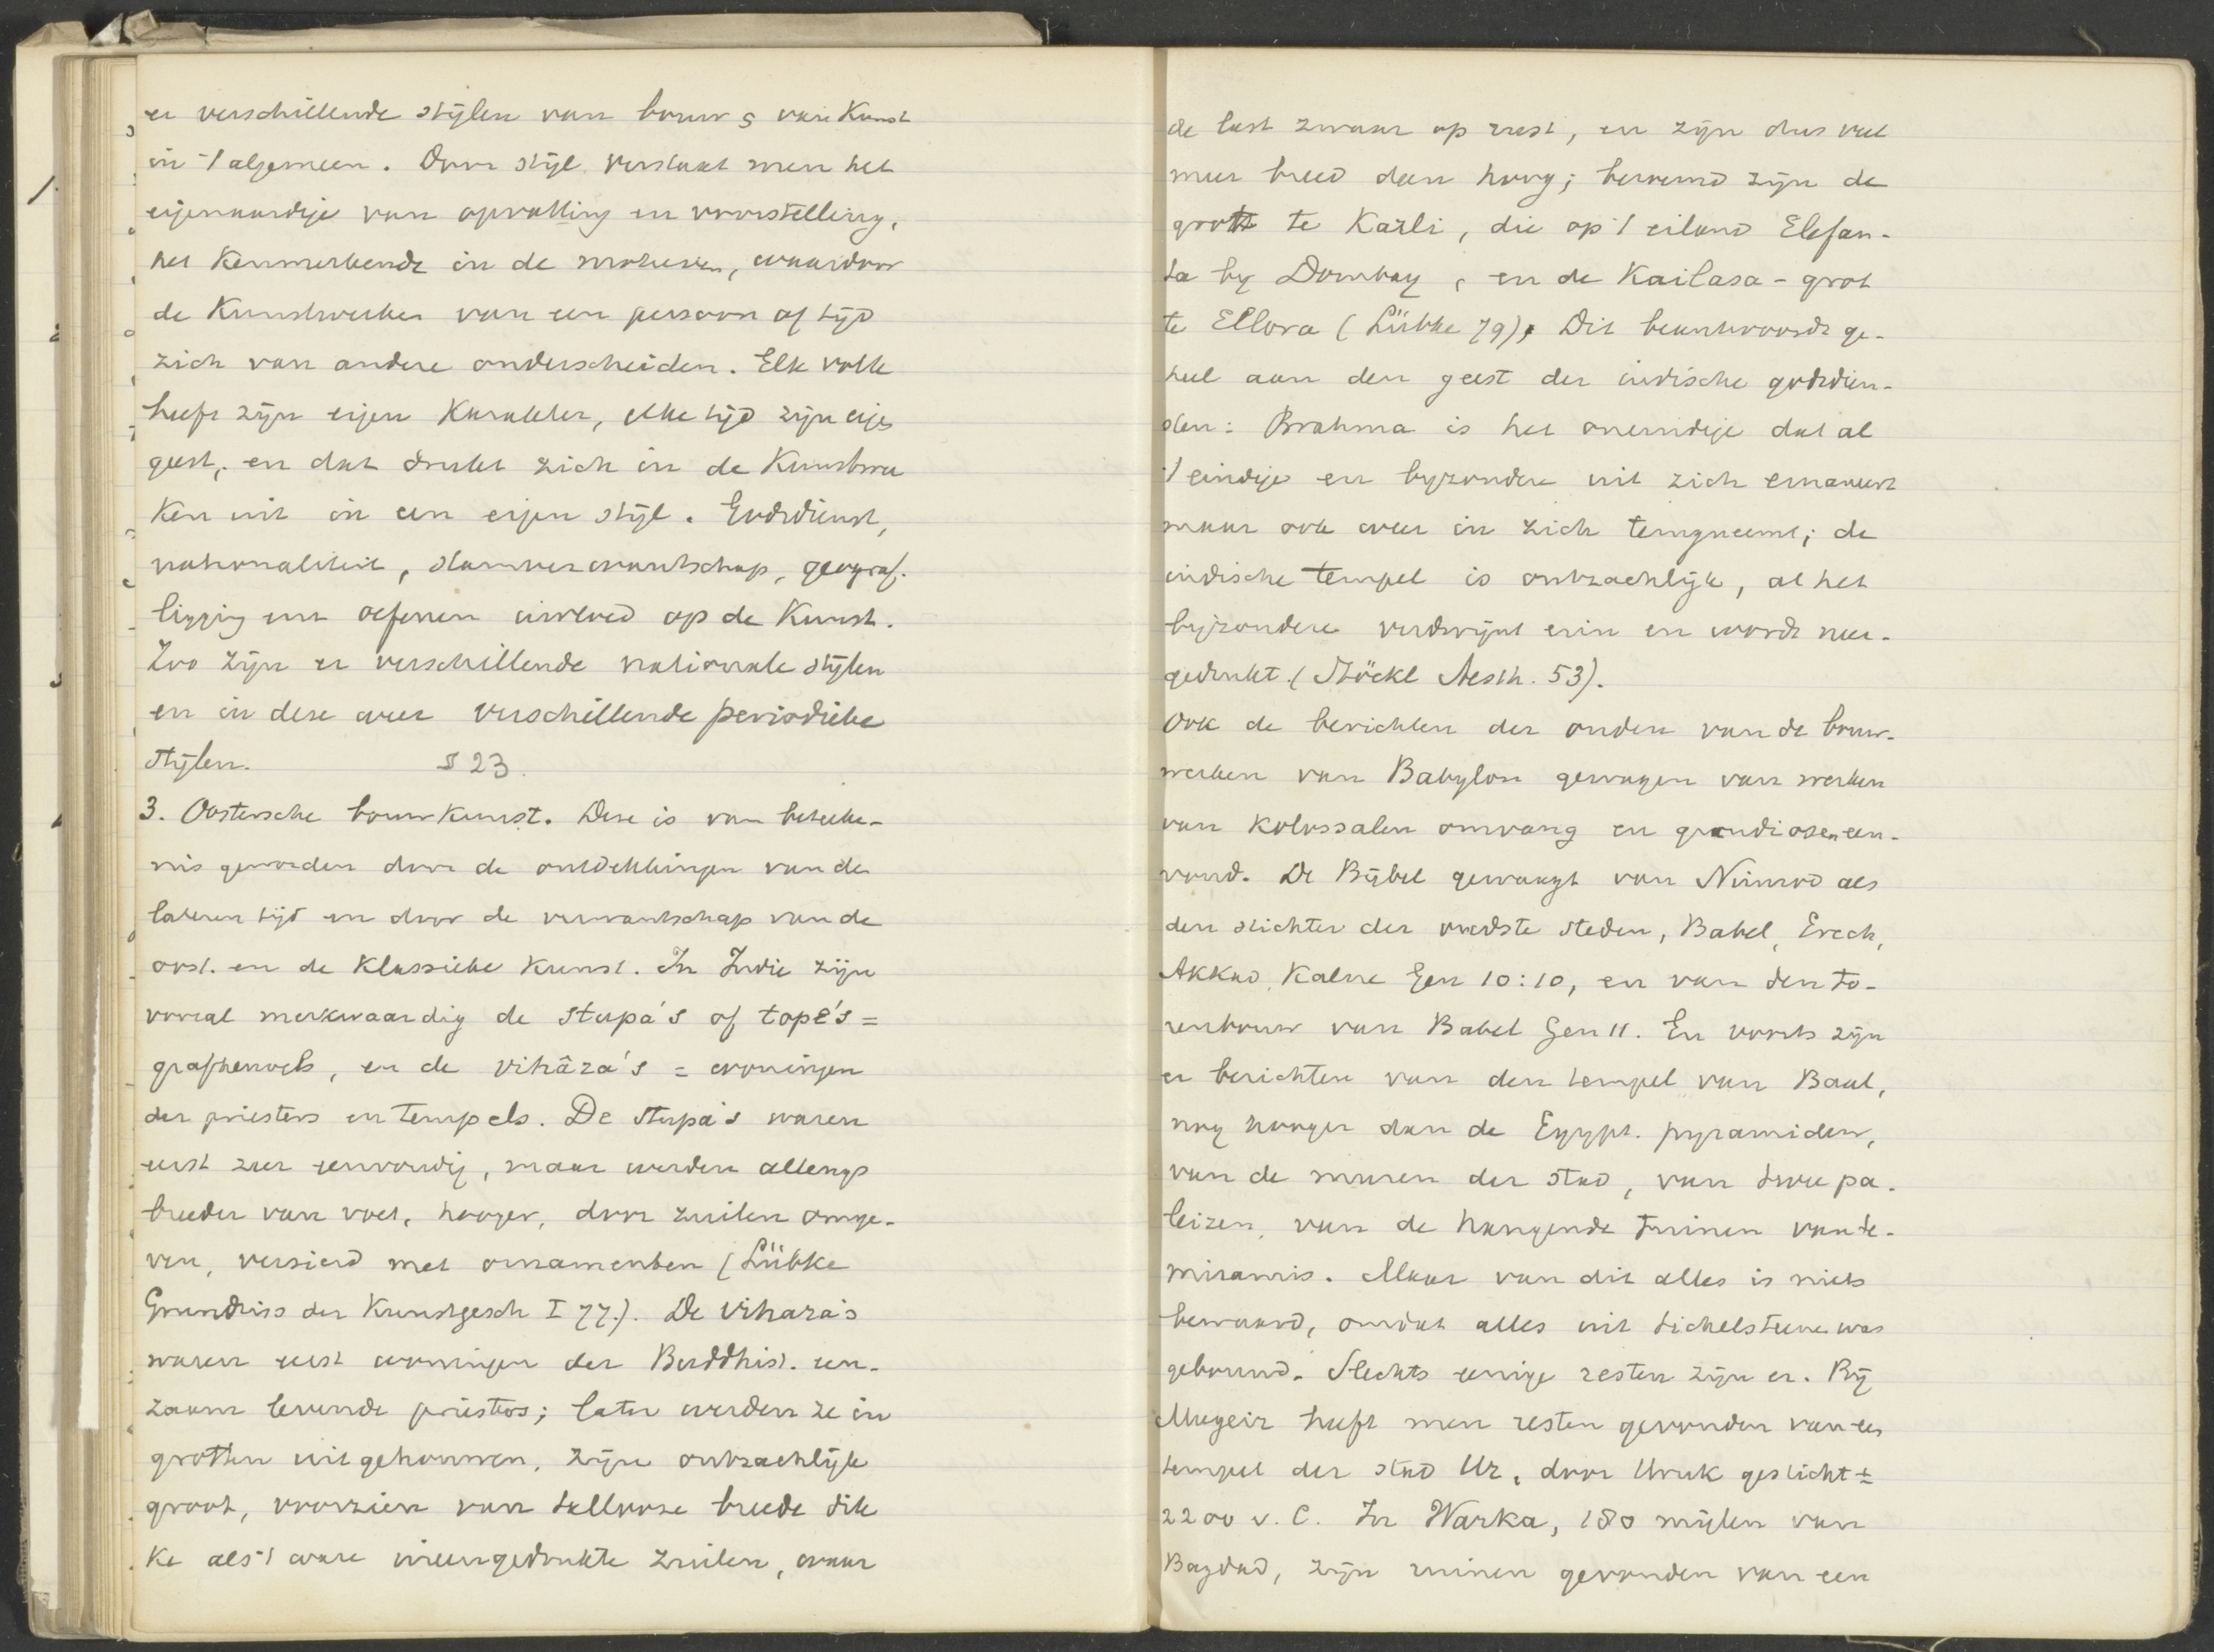 er verschillende stijlen van bouw & van Kunst
in 't algemeen. Door stijl verstaat men het
eigenaardige van opvatting en voorstelling,
het Kenmerkende in de motieven, waardoor
de Kunstwerken van een persoon of tijd
zich van andere onderscheiden. Elk volk
heeft zijn eigen Karakter, elke tijd zijn eigen
geest, en dat drukt zich in de Kunstwer
Ken uit in een eigen stijl. Godsdienst,
nationaliteit, stamverwantschap, geograf.
ligging enz oefenen invloed op de Kunst.
Zoo zijn er verschillende nationale stijlen
en in deze weer verschillende periodieke
stijlen. § 23.
3. Oostersche bouwKunst. Deze is van beteeke-
nis geworden door de ontdekkingen van de
lateren tijd en door de verwantschap van de
oost. en de Klassieke Kunst. In Indie zijn
vooral merkwaardig de stupa's of tope's =
grafheuvels, en de vihâra's = woningen
der priesters en tempels. De stupa's waren
eerst zeer eenvoudig, maar werden allengs
breeder van voet, hooger, door zuilen omge-
ven, versierd met ornamenten (Lübke
Grundriss der Kunstgesch I 77.). De vihara's
waren eerst woningen der Buddhist. een-
zaam levende priesters; later werden ze in
grotten uitgehouwen, zijn ontzachlijk
groot, voorzien van tallooze breede dik
Ke als 't ware ineengedrukte zuilen, waar
de last zwaar op rust, en zijn dus veel
meer breed dan hoog; beroemd zijn de
grott te Karli, die op 't eiland Elefan-
ta by Bombay, en de Kailasa-grot
te Ellora (Lübke 79). Dit beantwoordt ge-
heel aan den geest der indische godsdien-
sten: Brahma is het oneindige dat al
't eindige en byzondere uit zich emaneert
maar ook weer in zich terugneemt; de
indische tempel is ontzachlijk, al het
byzondere verdwijnt erin en wordt neer-
gedrukt. (Stöckl Aesth. 53).
Ook de berichten der ouden van de bouw-
werken van Babylon gewagen van werken
van Kolossalen omvang en grandiosen een-
voud. De Bijbel gewaagt van Nimrod als
den stichter der oudste steden, Babel, Erech,
Akkad, Kalne Gen 10:10, en van den to-
renbouw van Babel Gen 11. En voorts zijn
er berichten van den tempel van Baal,
nog hooger dan de Egypt. pyramiden,
van de muren der stad, van twee pa-
leizen, van de hangende tuinen van Se-
miramis. Maar van dit alles is niets
bewaard, omdat alles uit tichelsteen was
gebouwd. Slechts eenige resten zijn er. Bij
Mugeir heeft men resten gevonden van een
tempel der stad Ur, door Uruk gesticht ±
2200 v. C. In Warka, 180 mijlen van
Bagdad, zijn ruinen gevonden van een